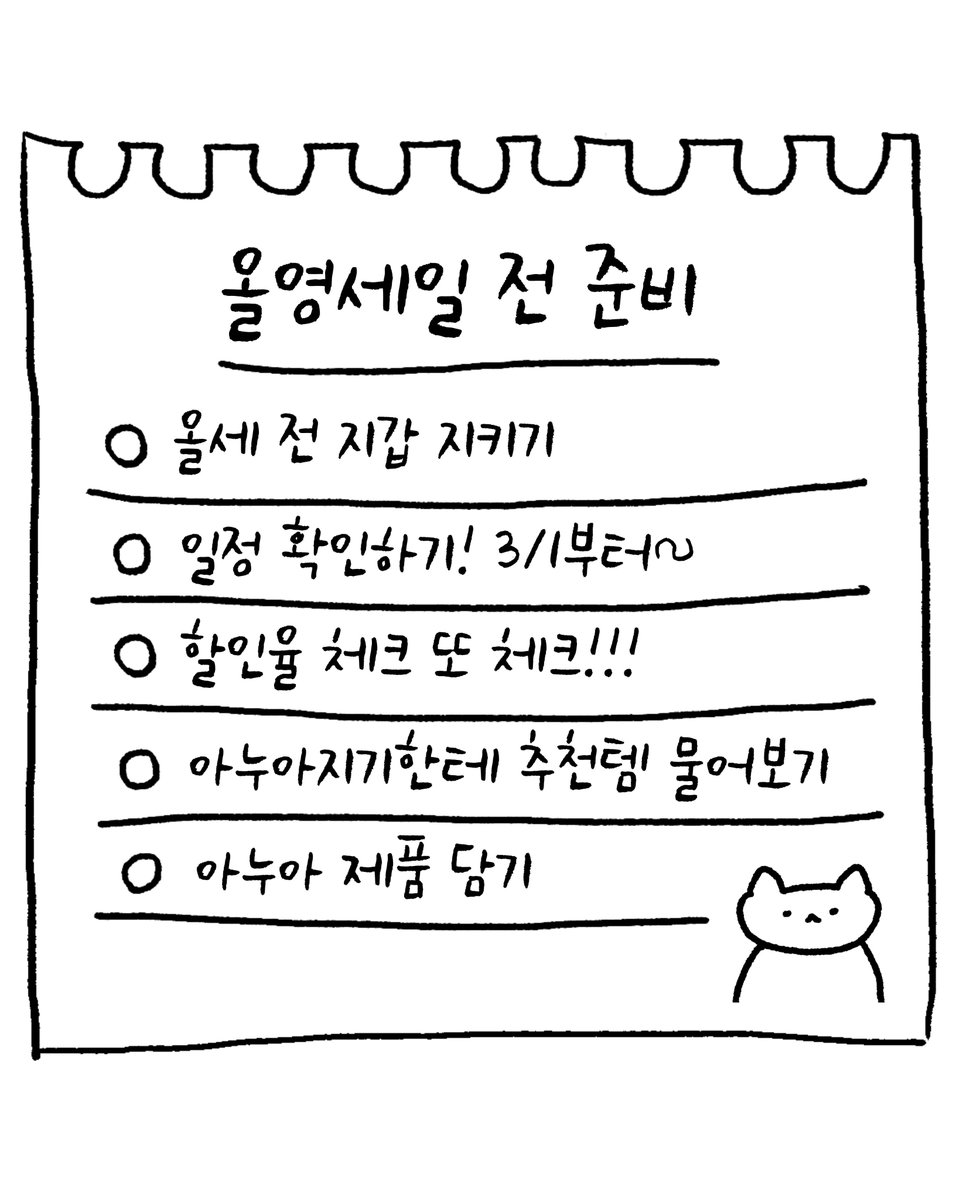 올영세일 전 준비
올세 전 지갑 지키기
일정 확인하기! 3/1부터~
할인율 체크 또 체크!!!
아누아지기한테 추천템 물어보기
아누아 제품 담기